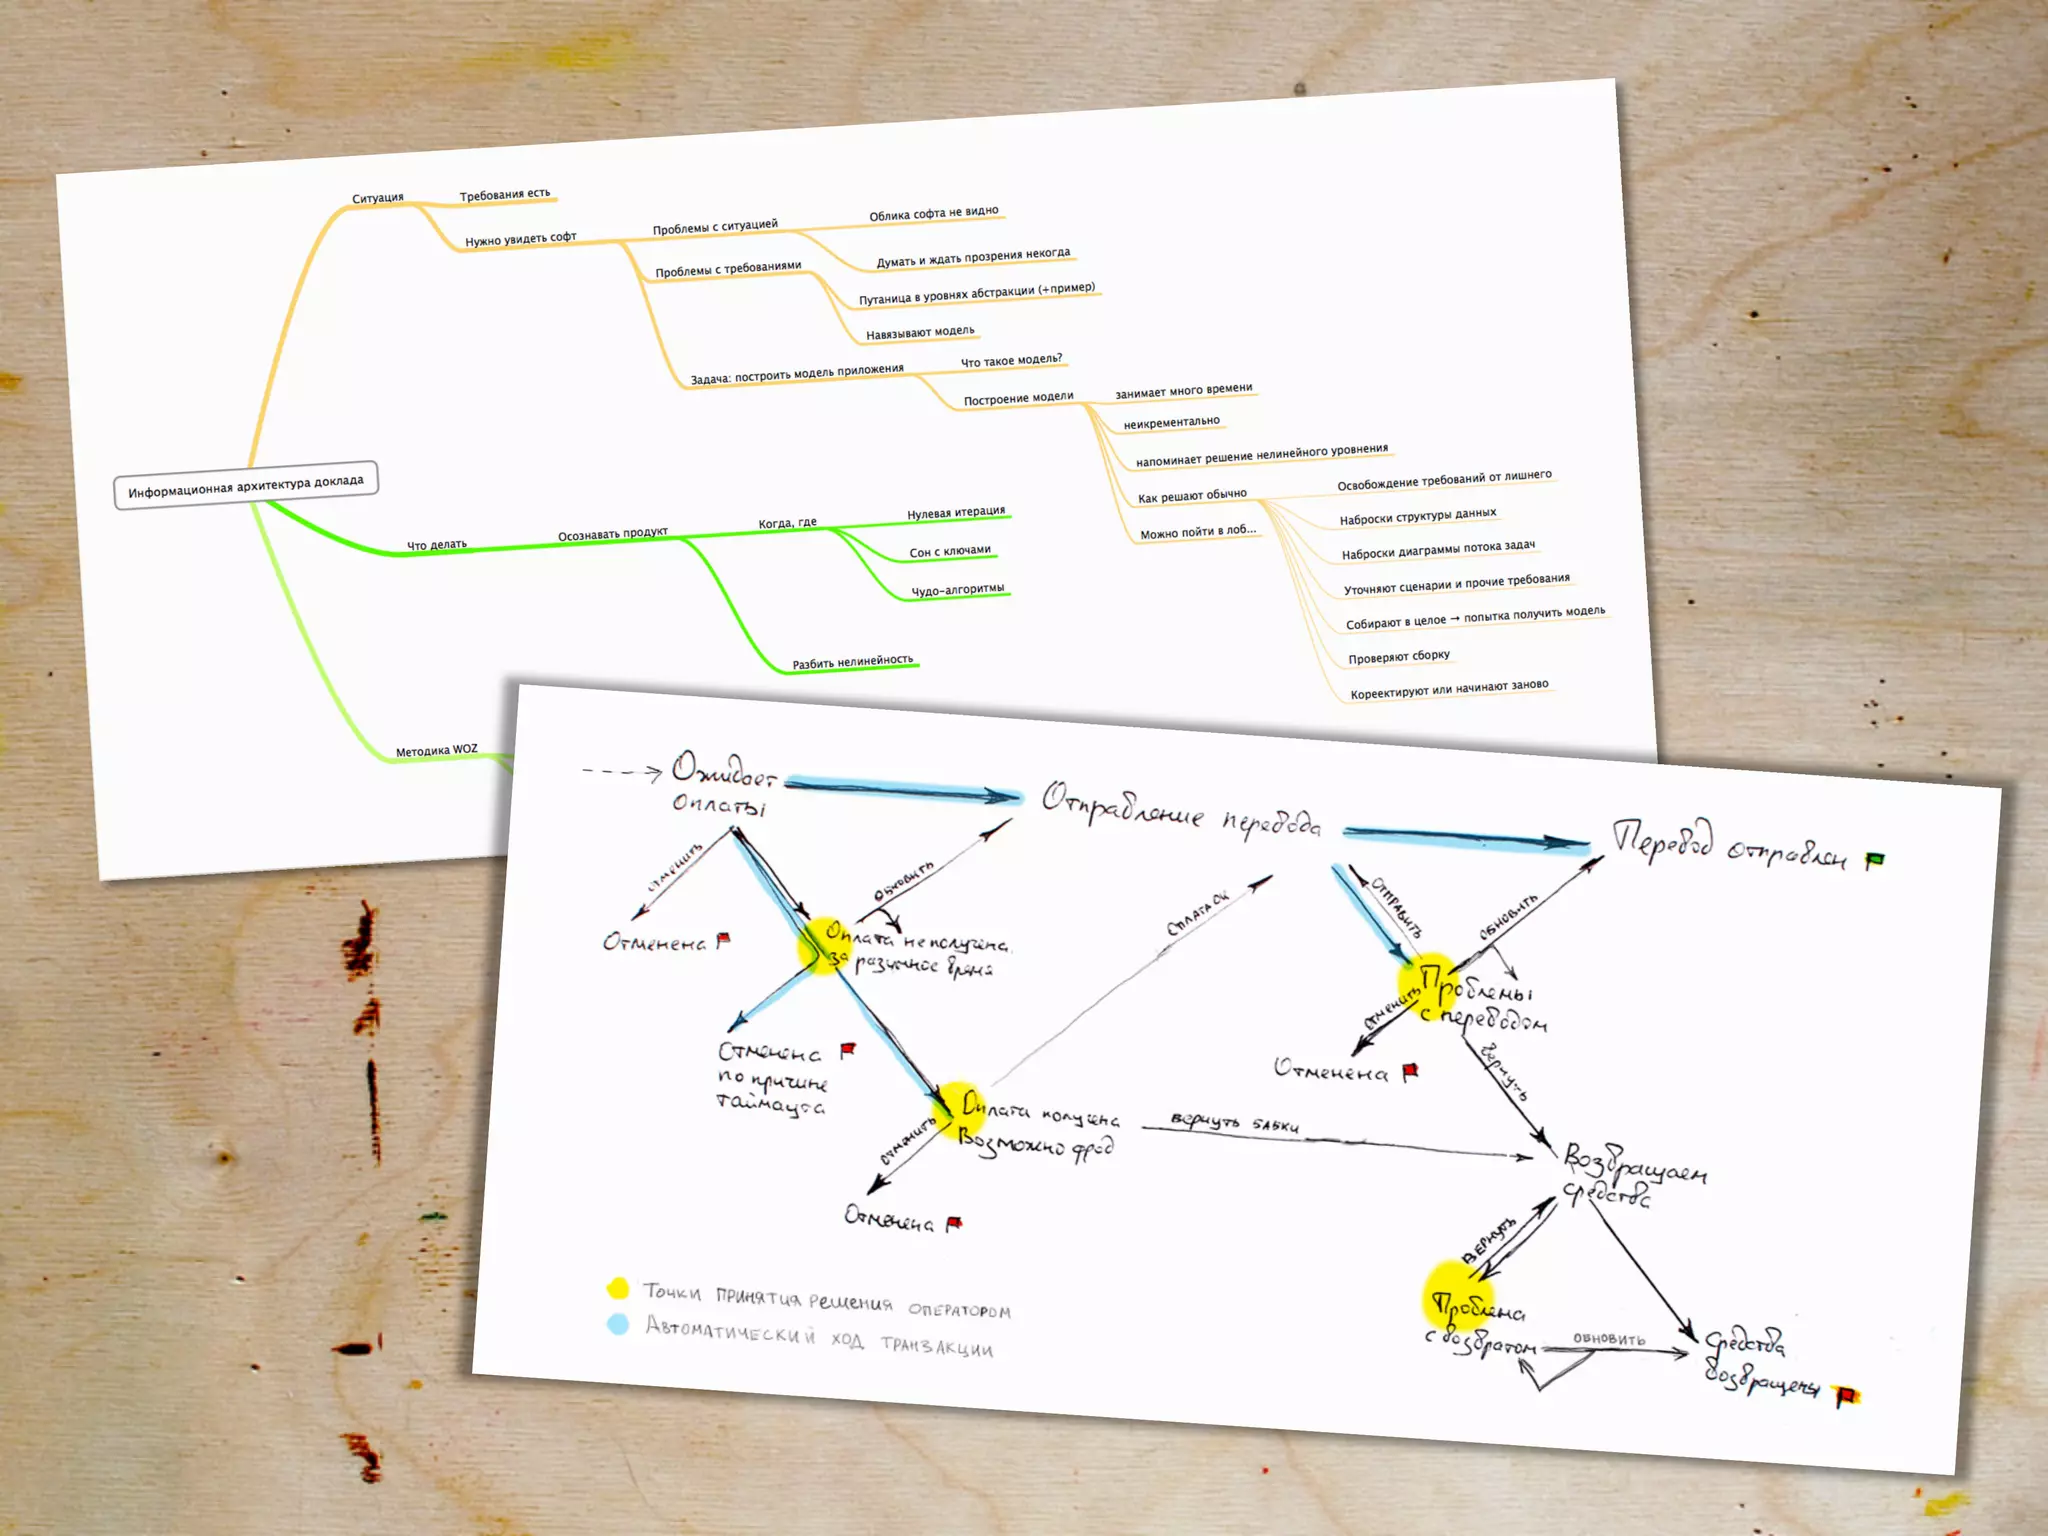 Ситуация
Требования есть
Нужно увидеть софт
Проблемы с ситуацией
Облика софта не видно
Думать и ждать прозрения некогда
Проблемы с требованиями
Путаница в уровнях абстракции (+пример)
Навязывают модель
Задача: построить модель приложения
Что такое модель?
Построение модели
занимает много времени
неикрементально
напоминает решение нелинейного уровнения
Как решают обычно
Освобождение требований от лишнего
Наброски структуры данных
Наброски диаграммы потока задач
Уточняют сценарии и прочие требования
Собирают в целое → попытка получить модель
Проверяют сборку
Кореектируют или начинают заново
Можно пойти в лоб...
Информационная архитектура доклада
Что делать
Осознавать продукт
Когда, где
Нулевая итерация
Сон с ключами
Чудо-алгоритмы
Разбить нелинейность
Методика WOZ
Ожидает
оплаты
Отправление перевода
Перевод отправлен
отменить
Отменена
обновить
Оплата не получена
за разумное время
Отменена
по причине
таймаута
отменить
Отменена
Оплата получена
Возможно фрод
вернуть бабки
отправить
обновить
Проблемы
с переводом
отменить
Отменена
вернуть
Возвращаем
средства
вернуть
Проблема
с возвратом
обновить
Средства
возвращены
Точки принятия решения оператором
Автоматический ход транзакции